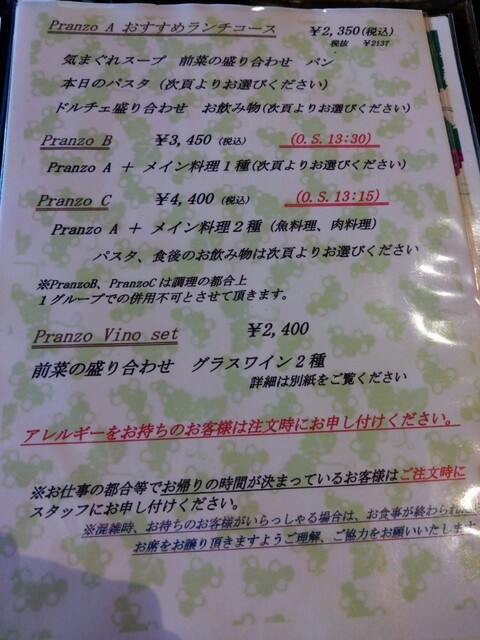 Pranzo A おすすめランチコース ￥2,350(税込)
税抜 ￥2137
気まぐれスープ 前菜の盛り合わせ パン
本日のパスタ（次頁よりお選びください）
ドルチェ盛り合わせ お飲み物（次頁よりお選びください）
Pranzo B ￥3,450（税込） (O.S.13:30)
Pranzo A ＋ メイン料理１種（次頁よりお選びください）
Pranzo C ￥4,400（税込） (O.S.13:15)
Pranzo A ＋ メイン料理２種（魚料理、肉料理）
パスタ、食後のお飲み物は次頁よりお選びください
※PranzoB、PranzoCは調理の都合上
１グループでの併用不可とさせて頂きます。
Pranzo Vino set ￥2,400
前菜の盛り合わせ グラスワイン２種
詳細は別紙をご覧ください
アレルギーをお持ちのお客様は注文時にお申し付けください。
※お仕事の都合等でお帰りの時間が決まっているお客様はご注文時に
スタッフにお申し付けください。
※混雑時、お待ちのお客様がいらっしゃる場合は、お食事が終わられ
お席をお譲り頂きますようご理解、ご協力をお願いいたします